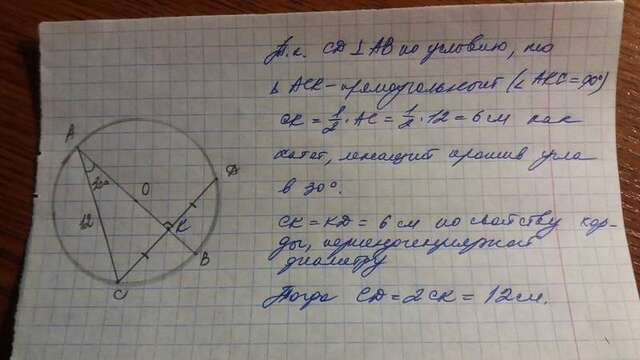 Т.к. CD ⊥ AB по условию, то
Δ ACK - прямоугольный (∠AKC = 90°)
CK = 1/2 · AC = 1/2 · 12 = 6 см как
катет, лежащий против угла
в 30°.
CK = KD = 6 см по свойству хор-
ды, перпендикулярной
диаметру
Тогда CD = 2CK = 12 см.
A
30°
O
D
12
K
B
C